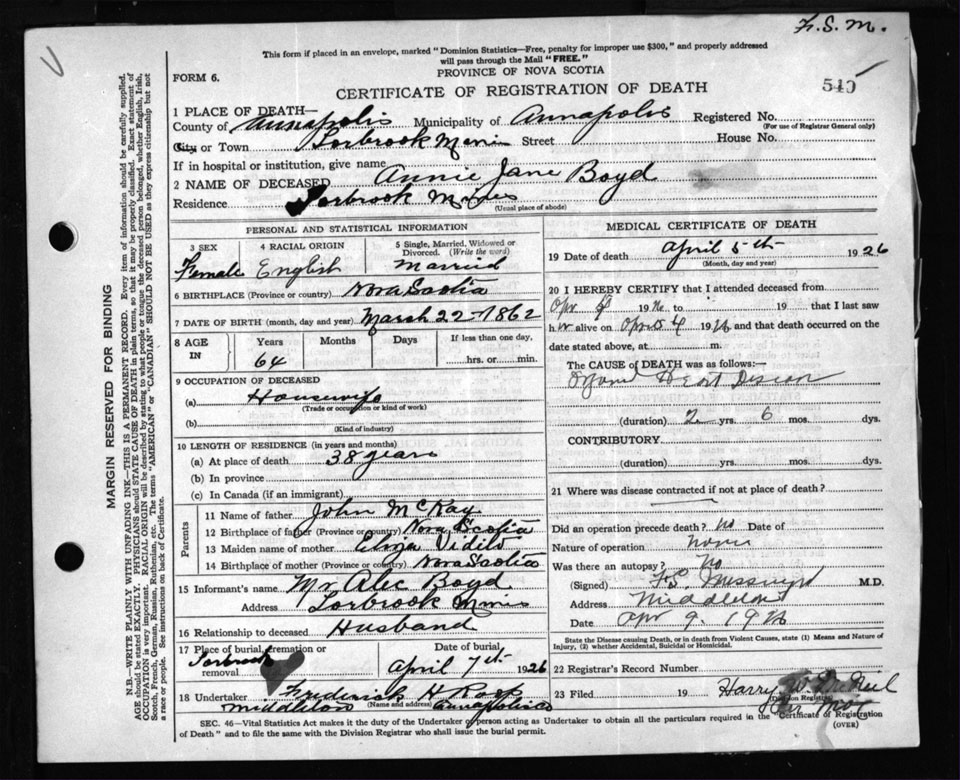 F.S.M.
This form if placed in an envelope, marked "Dominion Statistics—Free, penalty for improper use $300," and properly addressed
will pass through the Mail "FREE."
FORM 6.
PROVINCE OF NOVA SCOTIA
CERTIFICATE OF REGISTRATION OF DEATH
540
1 PLACE OF DEATH—
County of Annapolis Municipality of Annapolis Registered No.
(For use of Registrar General only)
City or Town Torbrook Mines Street House No.
If in hospital or institution, give name
2 NAME OF DECEASED Annie Jane Boyd
Residence Torbrook Mines
(Usual place of abode)
PERSONAL AND STATISTICAL INFORMATION
3 SEX 4 RACIAL ORIGIN 5 Single, Married, Widowed or Divorced. (Write the word)
Female English Married
6 BIRTHPLACE (Province or country) Nova Scotia
7 DATE OF BIRTH (month, day and year) March 22-1862
8 AGE IN Years Months Days If less than one day,
64 hrs. or min.
9 OCCUPATION OF DECEASED
(a) Housewife
(Trade or occupation or kind of work)
(b)
(Kind of industry)
10 LENGTH OF RESIDENCE (in years and months)
(a) At place of death 38 years
(b) In province
(c) In Canada (if an immigrant)
Parents
11 Name of father John McKay
12 Birthplace of father (Province or country) Nova Scotia
13 Maiden name of mother Eliza Vidito
14 Birthplace of mother (Province or country) Nova Scotia
15 Informant's name Mr Alec Boyd
Address Torbrook Mines
16 Relationship to deceased Husband
17 Place of burial, cremation or removal Torbrook Date of burial April 7th 1926
18 Undertaker Frederick H Roop
(Name and address)
Middleton Annapolis Co
MEDICAL CERTIFICATE OF DEATH
19 Date of death April 5th 1926
(Month, day and year)
20 I HEREBY CERTIFY that I attended deceased from
Apr 1926 to 19 that I last saw
her alive on Apr 4 1926 and that death occurred on the
date stated above, at m.
The CAUSE OF DEATH was as follows:
Heart Disease
(duration) 2 yrs. 6 mos. dys.
CONTRIBUTORY
(duration) yrs. mos. dys.
21 Where was disease contracted if not at place of death?
Did an operation precede death? No Date of
Nature of operation None
Was there an autopay? No
(Signed) FS Messenger M.D.
Address Middleton
Date Apr 9. 1926
State the Disease causing Death, or in death from Violent Causes, state (1) Means and Nature of
Injury, (2) whether Accidental, Suicidal or Homicidal.
22 Registrar's Record Number
23 Filed 19 Harry
(Division Registrar)
SEC. 46—Vital Statistics Act makes it the duty of the Undertaker or person acting as Undertaker to obtain all the particulars required in the "Certificate of Registration
of Death" and to file the same with the Division Registrar who shall issue the burial permit.
(OVER)
MARGIN RESERVED FOR BINDING
N.B.—WRITE PLAINLY WITH UNFADING INK—THIS IS A PERMANENT RECORD. Every item of information should be carefully supplied.
AGE should be stated EXACTLY. PHYSICIANS should STATE CAUSE OF DEATH in plain terms, so that it may be properly classified. Exact statement of
OCCUPATION is very important. RACIAL ORIGIN will be described by stating to what people or tongue the deceased person belonged, whether English, Irish,
Scotch, French, German, Russian, Ruthenian, etc. The terms "AMERICAN" or "CANADIAN" SHOULD NOT BE USED as they express citizenship but not
a race or people. See instructions on back of Certificate.